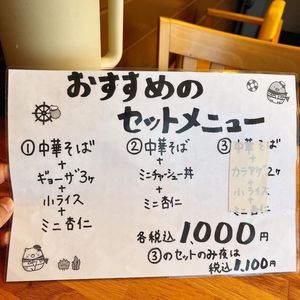 おすすめの
セットメニュー
①中華そば
+
ギョーザ3ヶ
+
小ライス
+
ミニ杏仁
②中華そば
+
ミニチャーシュー丼
+
ミニ杏仁
③中華そば
+
カラアゲ2ヶ
+
小ライス
+
ミニ杏仁
各税込 1,000円
③のセットのみ夜は
税込 1,100円